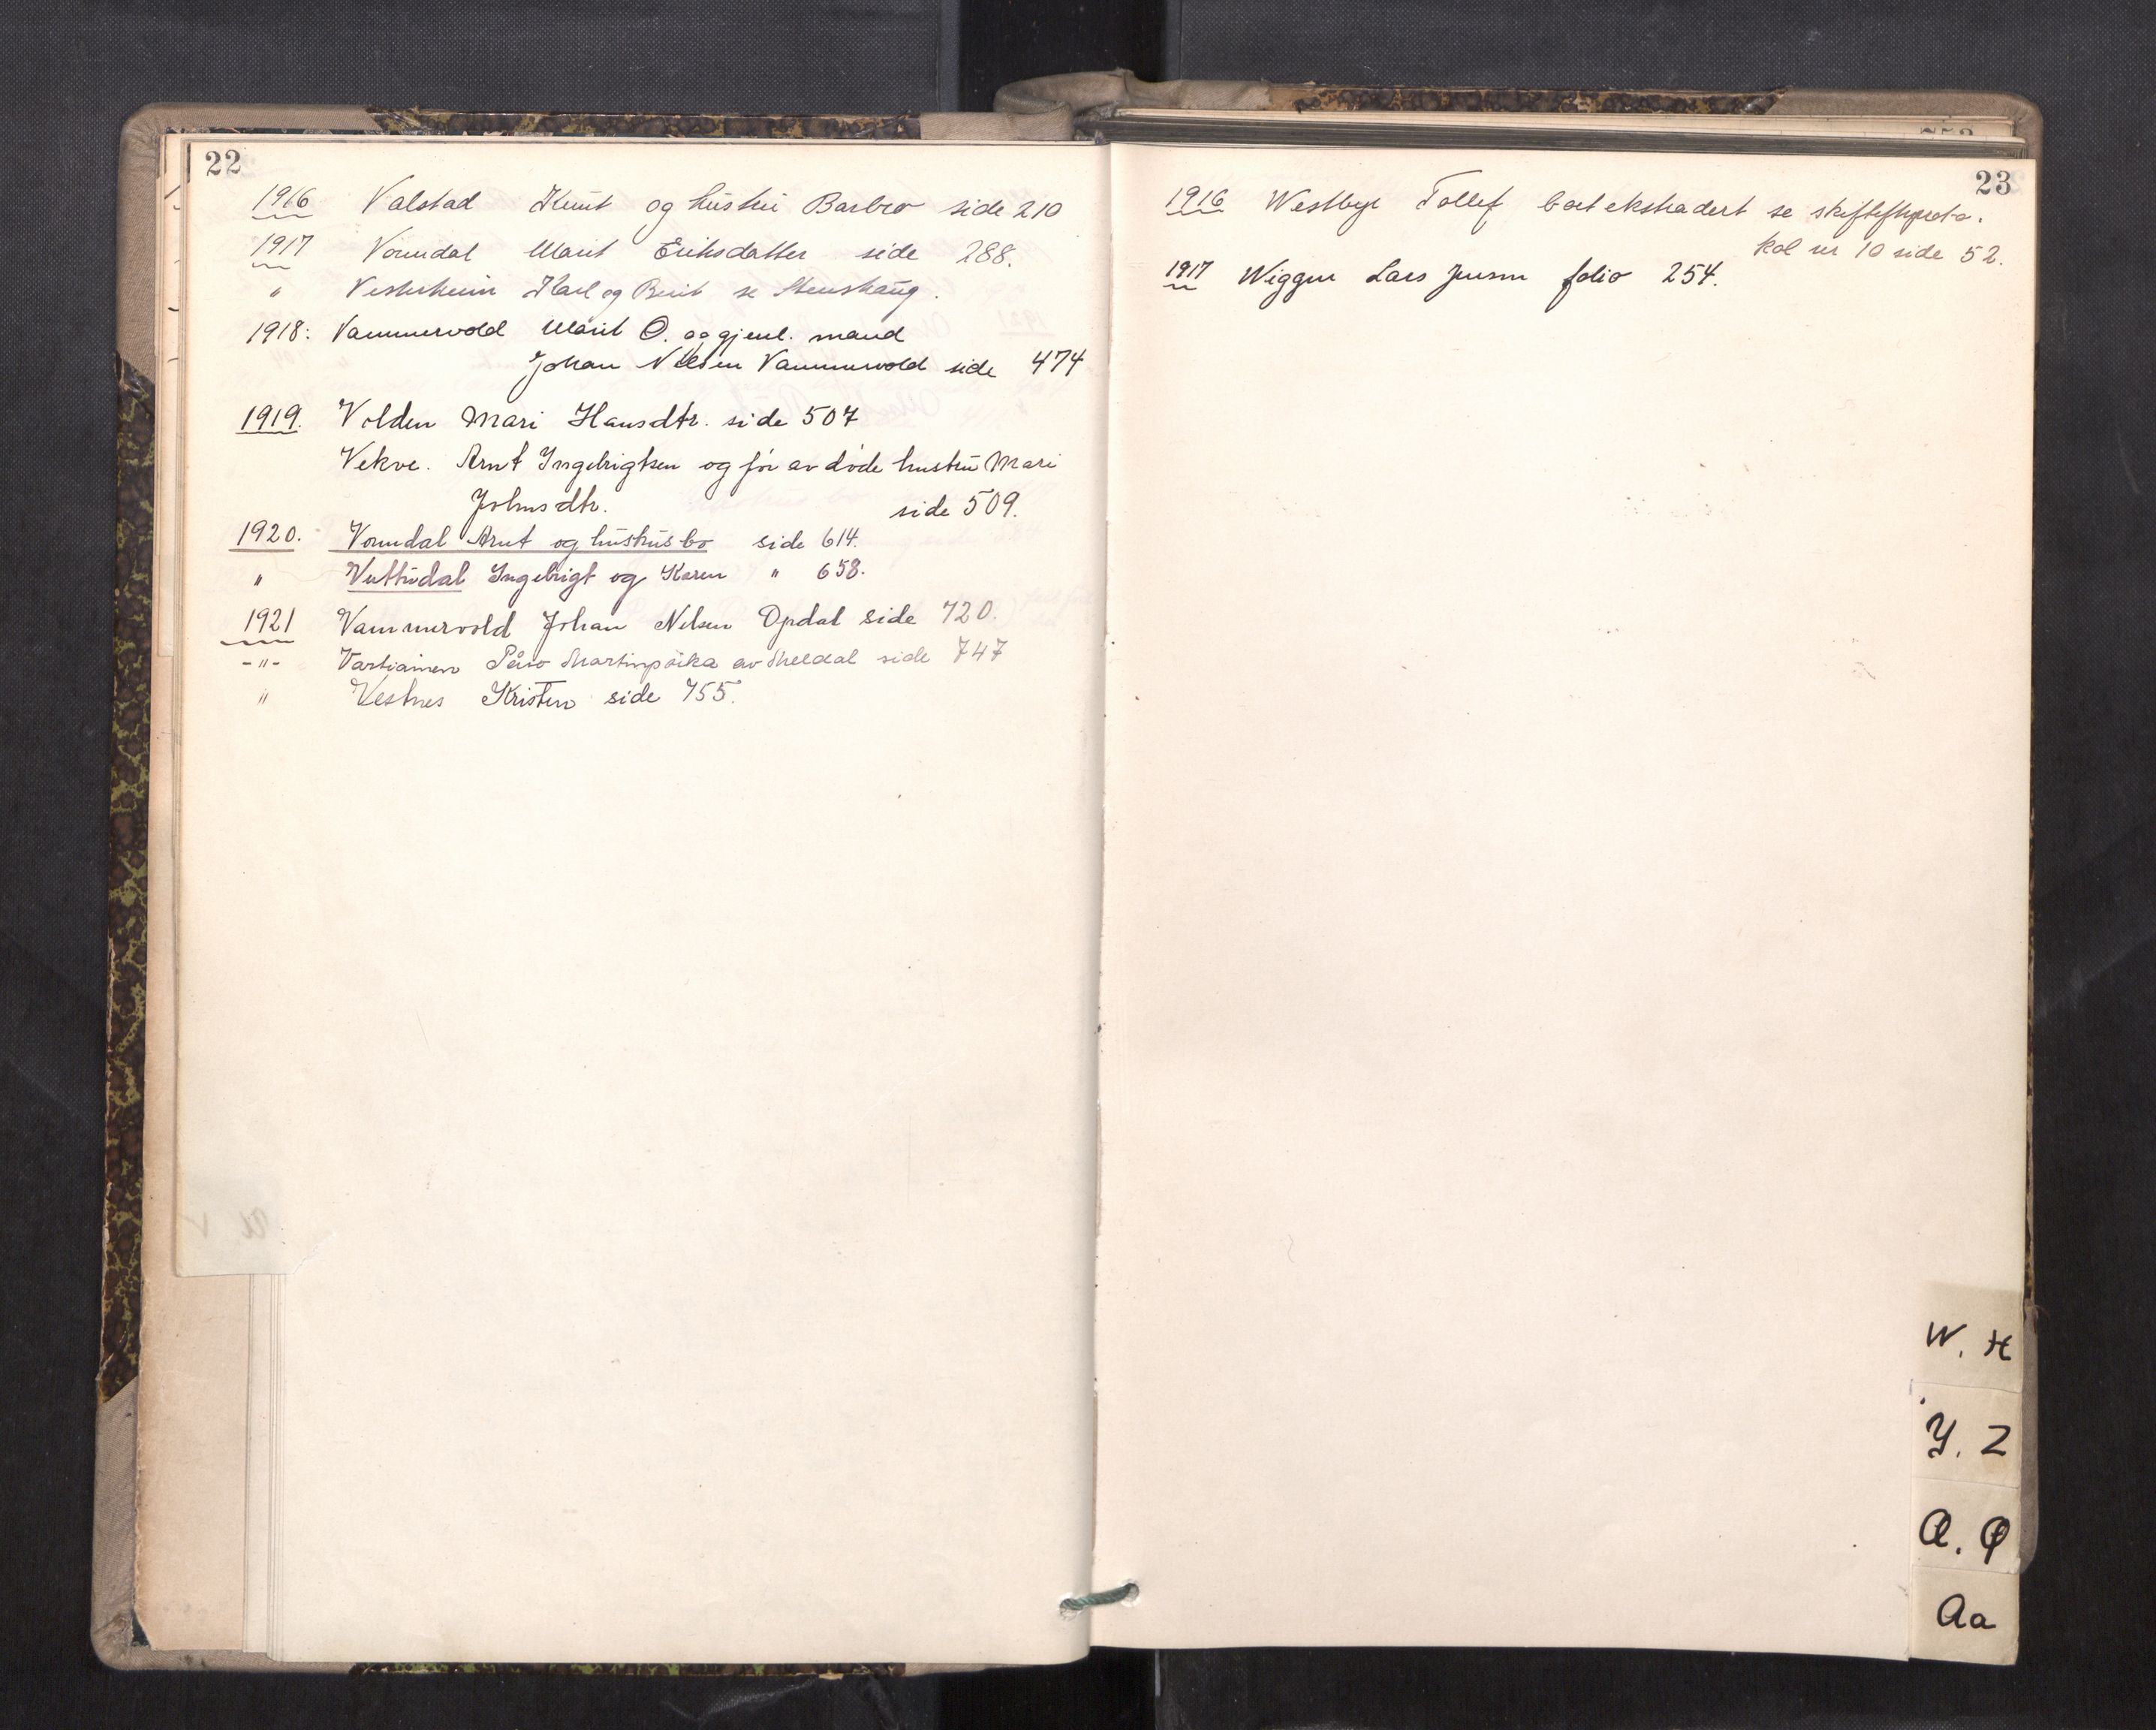 22
1916 Valstad Knut og hustru Barbro side 210
1917 Vorndal Marit Eriksdatter side 288.
" Vesterheim Karl og Berit se Stenshaug.
1918: Vammervold Marit O. og gjenl. mand
Johan Nilsen Vammervold side 474
1919. Volden Mari Hansdtr. side 507
Vekve. Arnt Ingebrigtsen og før avdøde hustru Mari
Johnsdtr. side 509.
1920. Vorndal Arnt og hustrus bo side 614.
" Vuttudal Ingebrigt og Karen " 658.
1921 Vammervold Johan Nelsen Opdal side 720.
-"- Vartiainen Påvo Martinpoika av Meldal side 747
" Vestnes Kristen side 755.
23
1916 Westbye Tollef boet ekstradert se skifteforhprot.
kol nr 10 side 52.
1917 Wiggen Lars Jensen folio 254.
W. X
Y. Z
Æ. Ø
Aa